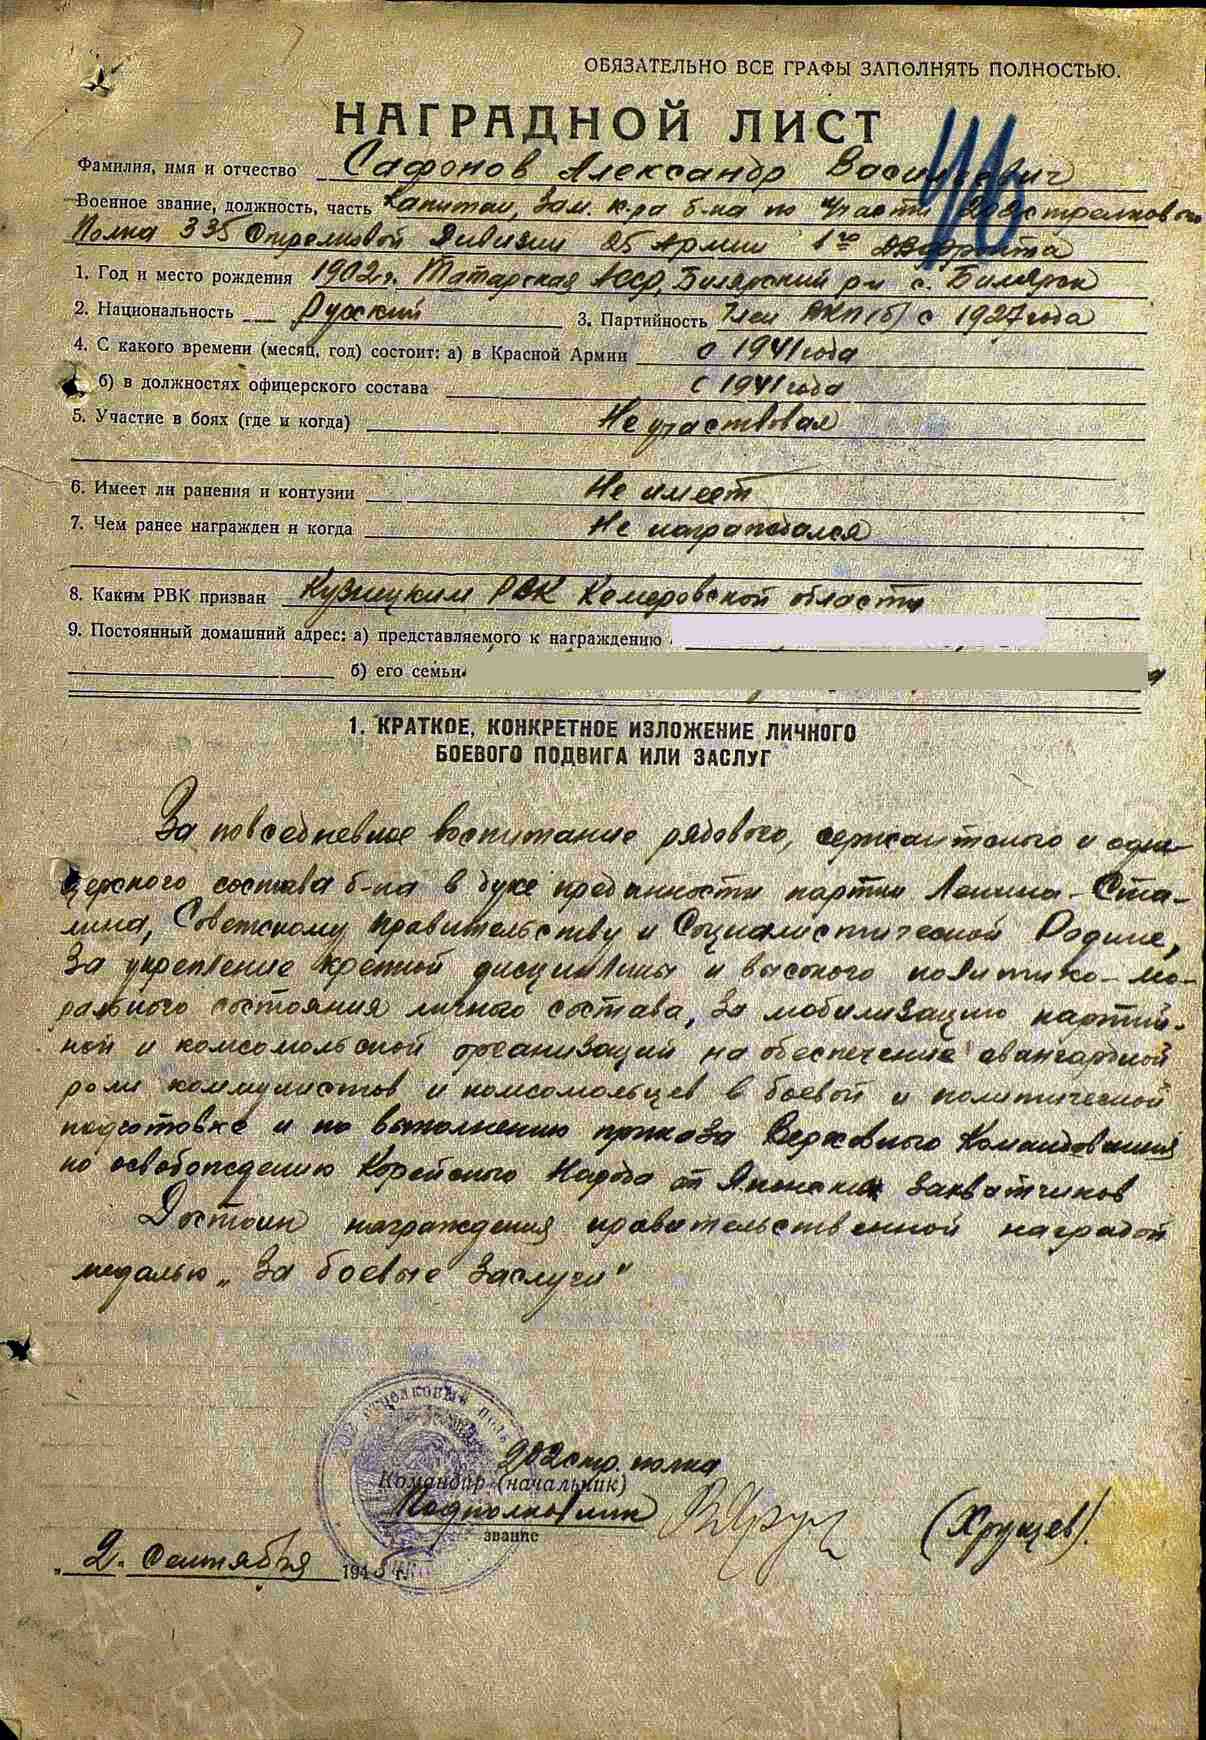 ОБЯЗАТЕЛЬНО ВСЕ ГРАФЫ ЗАПОЛНЯТЬ ПОЛНОСТЬЮ.
НАГРАДНОЙ ЛИСТ
Фамилия, имя и отчество Сафонов Александр Васильевич
Военное звание, должность, часть Капитан, Зам. к-ра б-на по п/части 202 стрелкового
Полка 335 Стрелковой Дивизии 25 Армии 1го ДВфронта
1. Год и место рождения 1902г. Татарская АССР, Билярский р-н с. Билярск
2. Национальность Русский 3. Партийность Член ВКП(б) с 1927 года
4. С какого времени (месяц, год) состоит: а) в Красной Армии с 1941 года
б) в должностях офицерского состава с 1941 года
5. Участие в боях (где и когда) Не участвовал
6. Имеет ли ранения и контузии Не имеет
7. Чем ранее награжден и когда Не награждался
8. Каким РВК призван Кузнецким РВК Кемеровской области
9. Постоянный домашний адрес: а) представляемого к награждению
б) его семьи
1. КРАТКОЕ, КОНКРЕТНОЕ ИЗЛОЖЕНИЕ ЛИЧНОГО
БОЕВОГО ПОДВИГА ИЛИ ЗАСЛУГ
За повседневное воспитание рядового, сержантского и офи-
церского состава б-на в духе преданности партии Ленина-Ста-
лина, Советскому правительству и Социалистической Родине,
За укрепление крепкой дисциплины и высокого политико-мо-
рального состояния личного состава, За мобилизацию партий-
ной и комсомольской организаций на обеспечение авангардной
роли коммунистов и комсомольцев в боевой и политической
подготовке и по выполнению приказа Верховного Командования
по освобождению Корейского Народа от Японских захватчиков
Достоин награждения правительственной наградой
медалью „За боевые заслуги"
202 стрелковый полк
202 стр. полка
Командир (начальник)
Подполковник (Хрущев).
звание
„2" Сентября 1945 г.
46